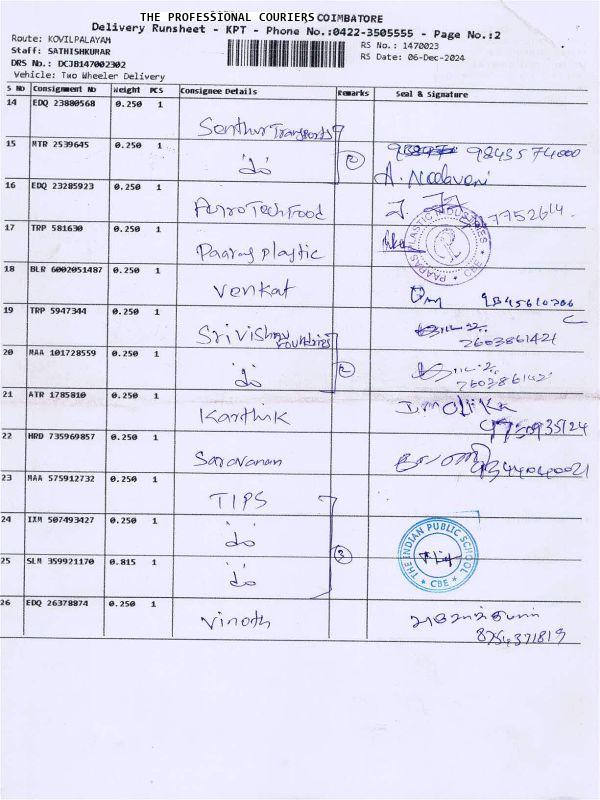 THE PROFESSIONAL COURIERS COIMBATORE
Delivery Runsheet - KPT - Phone No.:0422-3505555 - Page No.:2
Route: KOVILPALAYAM
Staff: SATHISHKUMAR
DRS No.: DCJB147002302
Vehicle: Two Wheeler Delivery
RS No.: 1470023
RS Date: 06-Dec-2024
S No Consignment No Weight PCS Consignee Details Remarks Seal & Signature
14 EDQ 23880568 0.250 1 Senthur Transports
15 MTR 2539645 0.250 1 do 2 9843574000
16 EDQ 23285923 0.250 1 FoodTech
17 TRP 581630 0.250 1 Paaras plastic PAARAS PLASTIC INDUSTRIES CBE
18 BLR 6002051487 0.250 1 Venkat
19 TRP 5947344 0.250 1 Srivishnu foundries 2603861421
20 MAA 101728559 0.250 1 do 2
21 ATR 1785810 0.250 1 Karthik
22 HRD 735969857 0.250 1 Saravanan 9344040021
23 MAA 575912732 0.250 1 TIPS
24 IXM 507493427 0.250 1 do
25 SLM 359921170 0.815 1 do 3 THE INDIAN PUBLIC SCHOOL CBE
26 EDQ 26378874 0.250 1 Vinoth
8754371819